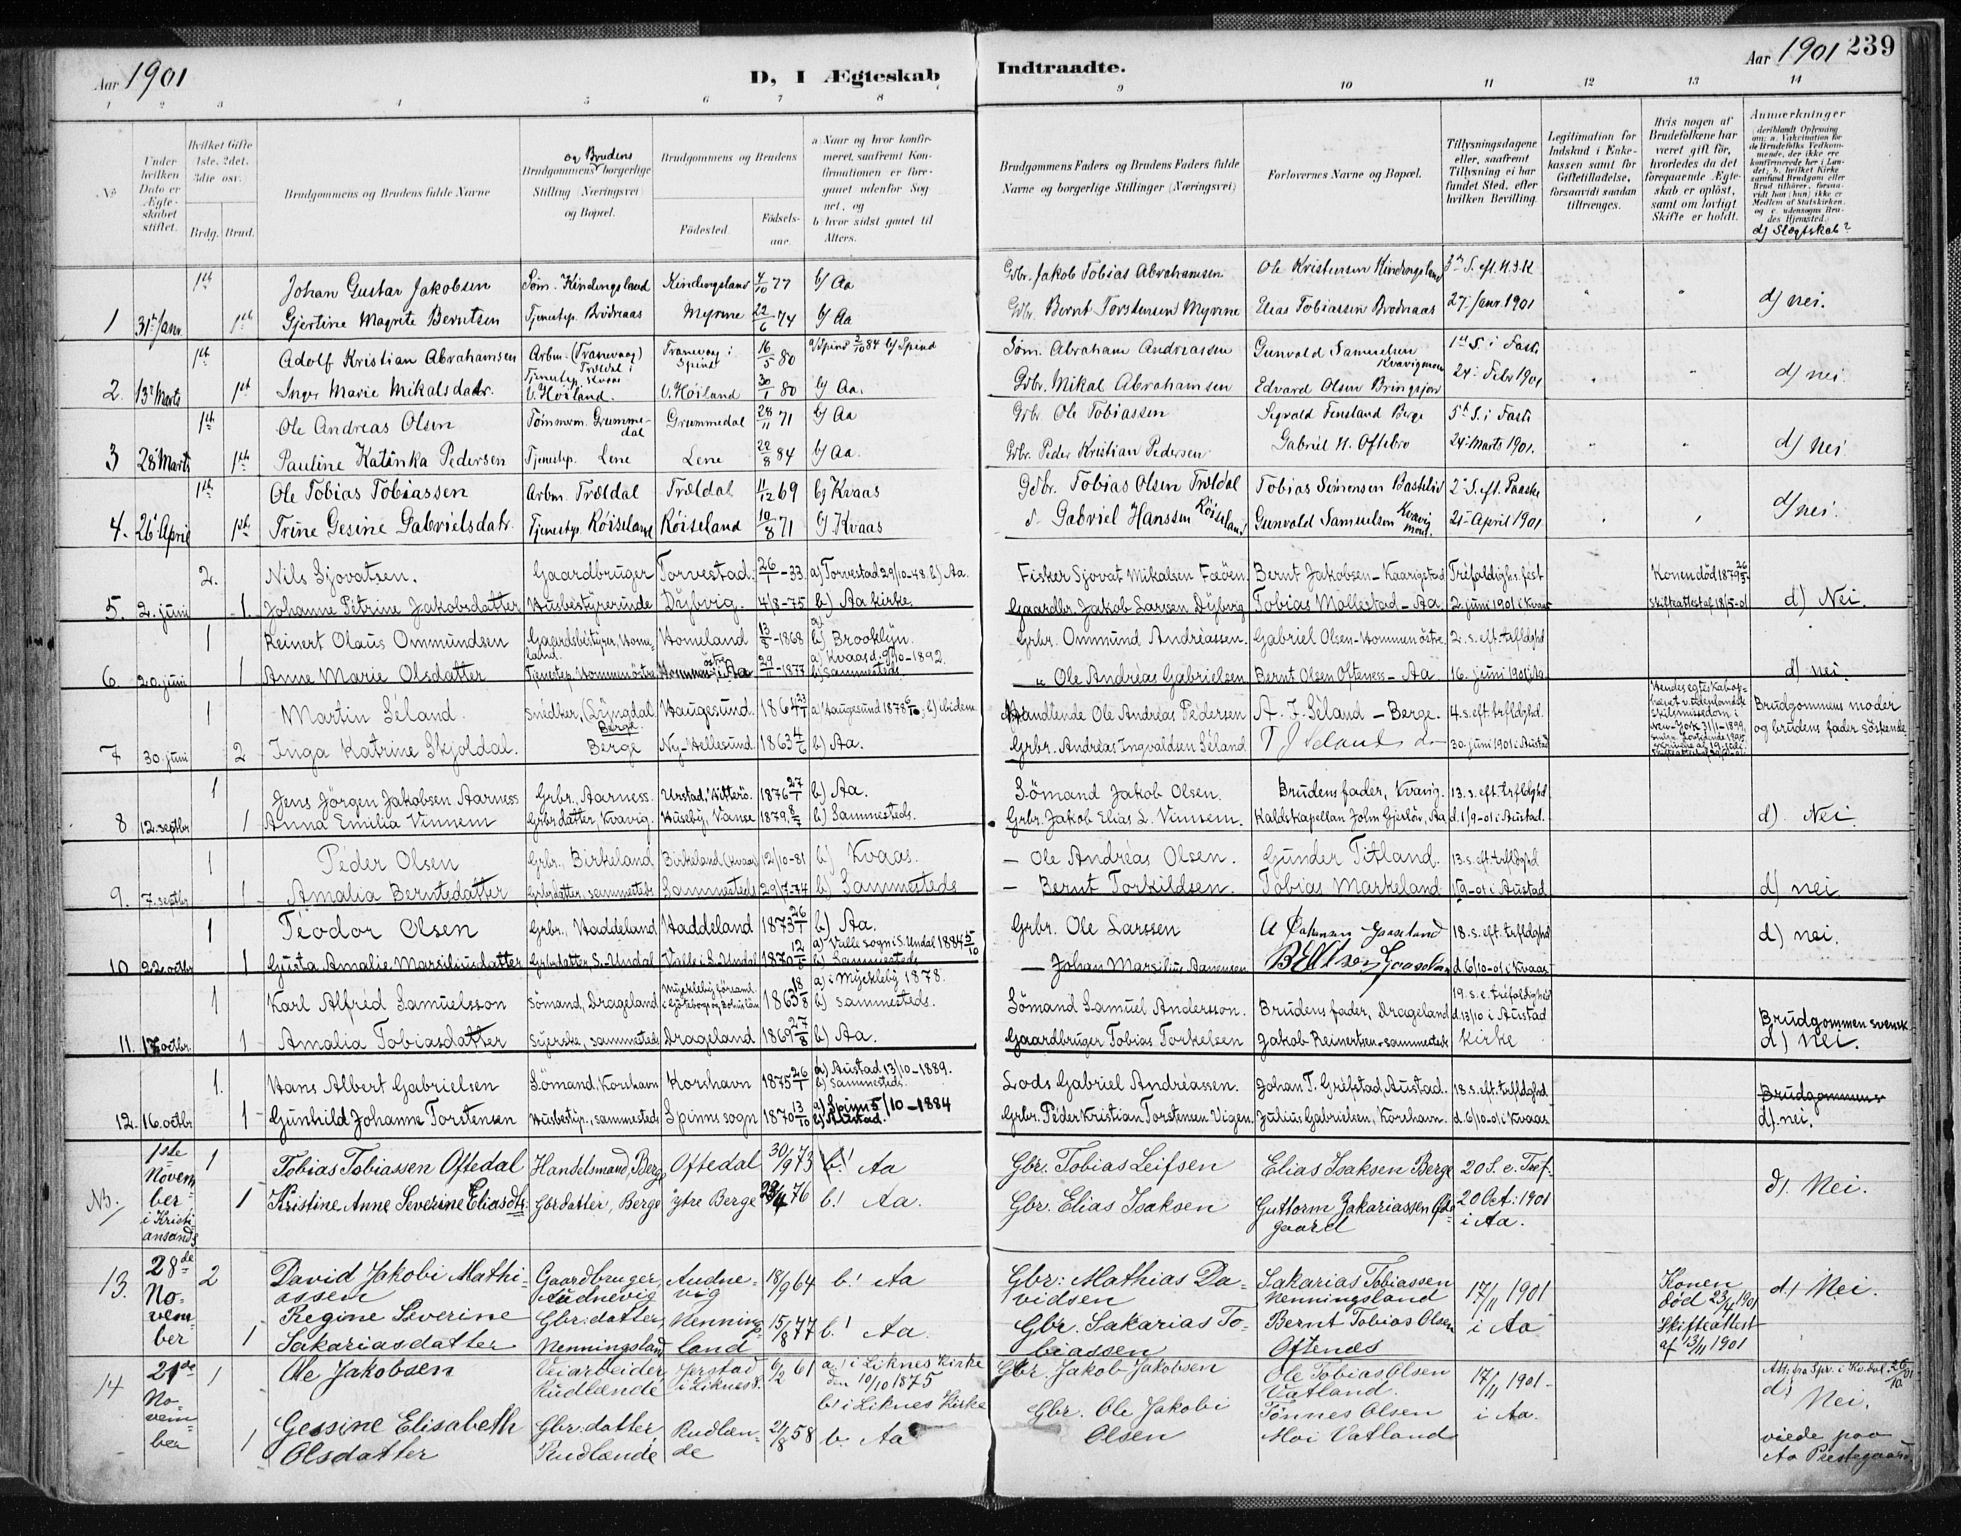 Aar 1901
D, I Ægteskab
Indtraadte.
Aar 1901 239
1 2 3 4 5 6 7 8 9 10 11 12 13 14
No
Under hvilken Dato er Ægteskabet stiftet.
Hvilket Gifte 1ste, 2det, 3die osv.
Brdg. Brud.
Brudgommens og Brudens fulde Navne
Brudgommens og Brudens borgerlige Stilling (Næringsvei) og Bopæl.
Brudgommens og Brudens
Fødested. Fødselsaar.
a) Naar og hvor konfirmeret, saafremt Konfirmationen er foregaaet udenfor Sognet, og
b) hvor sidst gaaet til Alters.
Brudgommens Faders og Brudens Faders fulde Navne og borgerlige Stillinger (Næringsvei)
Forlovernes Navne og Bopæl.
Tillysningsdagene eller, saafremt Tillysning ei har fundet Sted, efter hvilken Bevilling.
Legitimation for Indskud i Enkekassen samt for Giftetilladelse, forsaavidt saadan tiltrænges.
Hvis nogen af Brudefolkene har været gift før, hvorledes da det foregaaende Ægteskab er opløst, samt om lovligt Skifte er holdt.
Anmærkninger
d) Slægtskab?
1ste Johan Gustav Jakobsen Søm. Kindingsland Kindingsland 4/10 77 b) Aa Gbr. Jakob Tobias Abrahamsen Ole Kristensen Kindingsland 3die S. eft. H.3.K
1 31te Janr 1ste Gjertine Magrete Berntsen Tjenestep. Brødnaas Myrene 22/6 74 b) Aa Gbr. Bernt Torstensen Myrene Elias Tobiassen Brødnaas 27. Janr. 1901 " " d) nei.
1ste Adolf Kristian Abrahamsen Arbm. (Tranevaag) Træld i Kvaas Tranevaag i Spind 16/5 80 a) Spind 5/10 84 b) Spind Søm. Abraham Andreassen Gunvald Samuelsen Kvavigmoen 1ste S. i Faste
2. 13de Marts 1ste Inger Marie Mikalsdatr. Tjenestep. V. Høiland. V. Høiland 30/1 80 b) Aa. Gbr. Mikal Abrahamsen Edvard Olsen Bringsjor 24. Febr 1901 " " d) nei
1ste Ole Andreas Olsen Tømmerm. Grummedal Grummedal 28/11 71 b) Aa Gbr Ole Tobiassen Segvald Fensland Berge 5te S. i Faste
3 28 Marts 1ste Pauline Katinka Pedersen Tjenestep. Lene Lene 22/8 84 b) Aa. Gbr. Peder Kristian Pedersen Gabriel H. Oftebro 24. Marts 1901. " " d) nei.
1ste Ole Tobias Tobiassen Arbm. Trældal Trældal 11/12 69 b) Kvaas Gdbr. Tobias Olsen Trældal Tobias Sørensen Bastelid 2den S. eft. Paaske
4. 26 April 1ste Trine Gesine Gabrielsdatr. Tjenestep. Røiseland Røiseland 10/8 71 b) Kvaas d. Gabriel Hanssen Røiseland Gunvald Samuelsen Kvavigmoen. 21. April 1901 d) nei.
2. Nils Sjovatsen. Gaardbruger Torvestad. 26/1 - 33. a) Torvestad 29/10-48. b) Aa. Fisker Sjovat Mikalsen Fæøen. Bernt Jakobsen - Kaarigstad Trefoldighs. fest Konen død 1879 26/5.
5. 2. juni 1. Johanne Petrine Jakobsdatter Husbestyrerinde Dybvig. 4/8-75 b) Aa kirke. Gaardbr. Jakob Larsen Dybvig Tobias Møllestad - Aa 2. juni 1901 i Kvaas Skifteattest af 18/5-01 d) Nei.
1 Reinert Olaus Ommundsen Gaardbestyrer, Homeland. Homeland 13/8 - 1868 a) b) Brooklyn. Grbr. Ommund Andreassen. Gabriel Olsen - Hommen østre. 2. s. eft. trfldghd.
6. 20. juni 1 Anne Marie Olsdatter Tjenestep. Hommen østre Hommen østre i Aa 29/11 - 1877 a) Kvaas d. 9/10-1892. b) Sammesteds. " Ole Andreas Gabrielsen Bernt Olsen Ofteness - Aa 16. juni 1901, Aa d) nei.
1 Martin Séland. Snedker, (Lyngdal) Berge. Haugesund. 1864 23/4 a) Haugesund 1878 6/10, b) ibidem. Handlende Ole Andreas Pedersen A. F. Séland - Berge. 4. s. eft. trfldghd. Brudgommens moder
7 30. juni 2 Inga Katrine Skjoldal. Berge Ny-Hellesund. 1863 4/6 b) Aa. Grbr. Andreas Ingvaldsen Séland T J Seland 30. juni 1901 i Austad og brudens fader söskende
1 Jens Jörgen Jakobsen Aarness Grbr., Aarness. Urstad, Hitterö. 1876 27/1 b) Aa. Sömand Jakob Olsen. Brudens fader, Kvavig. 13. s. eft. trfldghd.
8 12. septbr 1 Anna Emilia Vinnem Grbrdatter, Kvavig. Huseby, Vanse 1879. 8/7 b) Sammesteds. Grbr. Jakob Elias L. Vinnem. Kaldskapellan John Gjerløv, Aa d. 1/9-01 i Austad. d). Nei.
1 Peder Olsen Grbr., Birkeland Birkeland (Kvaas) 12/10-81 b) Kvaas. - Ole Andreas Olsen. Gunder Titland. 13. s. eft. trfldghd
9. 7. septbr 1 Amalia Berntsdatter Grbrdatter, sammesteds Sammesteds 29/7-74 b) Sammesteds - Bernt Torkildsen. Tobias Markeland 1/9-01 i Austad d) nei.
1 Teodor Olsen Grbr., Haddeland Haddeland 1873 26/1 b) Aa. Grbr. Ole Larssen 18. s. eft. trfldghd d) nei.
10. 22. octbr 1 Gusta Amalie Marsiliusdatter Grbrdatter S.-Undal Valle i S. Undal 1870 12/8 a) Valle sogn i S. Undal 1884 5/10 b) Sammesteds - Johan Marsilius Aanensen d. 6/10-01 i Kvaas
1 Karl Alfréd Samuelsson Sömand, Drageland 1863 18/8 a) i Myckleby 1878. b) sammesteds. Sömand Samuel Andersson. Brudens fader, Drageland 19. s. e. trefoldighed d. 13/10 i Austad Brudgommen svensk.
11. 17 octbr. 1 Amalia Tobiasdatter Syerske, sammesteds Drageland 1869 27/8 b) Aa. Gaardbruger Tobias Torkelsen Jakob Reinertsen - sammesteds kirke d) nei.
1. Hans Albert Gabrielsen Sömand, Korshavn Korshavn 1875 26/1 a) Austad 13/10-1889. b) Sammesteds. Lods Gabriel Andréassen. Johan T. Grefstad, Austad. 18. s. eft. trfldghd Brudgommens
12. 16. octbr 1 Gunhild Johanne Torstensen Husbestyr., sammesteds Spinns sogn 1870 13/10 a) Spinn 5/10-1884 b) Austad. Grbr. Péder Kristian Torstensen Vigen. Julius Gabrielsen, Korshavn. d. 6/10-01 i Kvaas d). nei.
1ste November i Kristiansands 1 Tobias Tobiassen Oftedal Handelsmand, Berge Oftedal 30/9 73 b! Aa Gbr. Tobias Leifsen Elias Isaksen Berge 20 S. e. Tref.
NB. 1 Kristine Anne Severine Eliasdtr. Gbrdatter, Berge ytre Berge 76 b! Aa. Gbr. Elias Isaksen Guttorm Zakariassen Ødegaard 20 Oct. 1901 i Aa. d). Nei.
13. 28de November 2 David Jakobi Mathiassen Gaardbruger, Audnevig Audnevig 18/9 64 b! Aa Gbr: Mathias Davidsen Sakarias Tobiassen Nenningsland 17/11 1901 Konen død 23/4 1901 d) Nei.
1 Regine Severine Sakariasdatter Gbr: datter, Nenningsland Nenningsland 15/8 77 b! Aa. Gbr. Sakarias Tobiassen Bernt Tobias Olsen Oftenes i Aa Skifteattest af 13/11 1901
14 21de November 1 Ole Jakobsen Veiarbeider Rudlænde Jerstad i Liknes S. 6/2 61 a.) i Liknes Kirke den 10/10 1875 b! i Liknes Kirke Gbr. Jakob Jakobsen Ole Tobias Olsen Vatland. 17/11 1901 d) Nei.
1 Gessine Elisabeth Olsdatter Gbr: datter, Rudlænde Rudlænde 21/8 58 b. Aa Gbr. Ole Jakobi Olsen Tønnes Olsen Moi Vatland i Aa. viede paa Aa Prestegaard